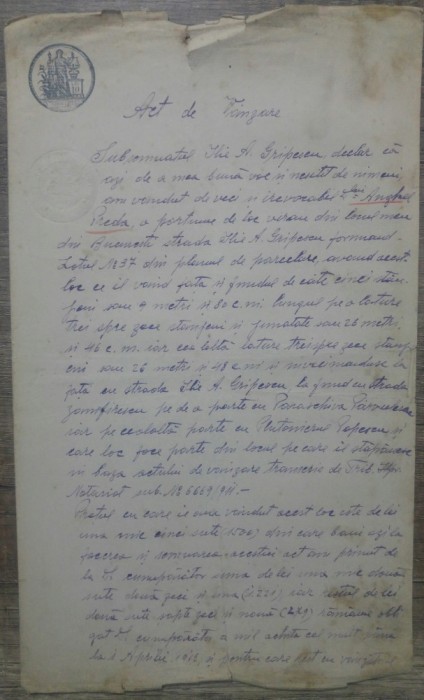 Act de Vinzare
Subsemnatul Ilie A. Gripescu declar că
azi de a mea bună voe și nesilit de nimeni
am vândut de veci și irevocabil Dlui Anghel
Preda, o porțiune de loc viran din locul meu
din strada Ilie A. Gripescu formând
Lotul No 37 din planul de parcelare, având acest
loc ce îl vând fața și fundul de câte cinci stân-
jeni sau metri și 80 c.m. lungul pe o lature
trei spre zece stânjeni și jumătate sau 26 metri
și 46 c.m. iar cealaltă lature treispre zece stânj
eni sau 26 metri și 48 c.m. și învecinându-se la
fața cu strada Ilie A. Gripescu la fund cu strada
pe de o parte cu Paraschiva
iar pe cealaltă parte cu Popescu, și
care loc face parte din locul pe care îl stăpânesc
în baza actului de vinzare transcris de Trib. Ilfov
Notariat sub No 6669/911.—
Prețul cu care i-am vândut acest loc este de lei
una mie cinci sute (1500) din care bani azi la
facerea și semnarea acestui act am primit de
la D. cumpărător suma de lei una mie două
sute două zeci și una (1221), iar restul de lei
două sute șapte zeci și nouă (279) rămâne obli
gat D. cumpărător a mi-l achita cel mult până
la 1 Aprilie 1912, și pentru care